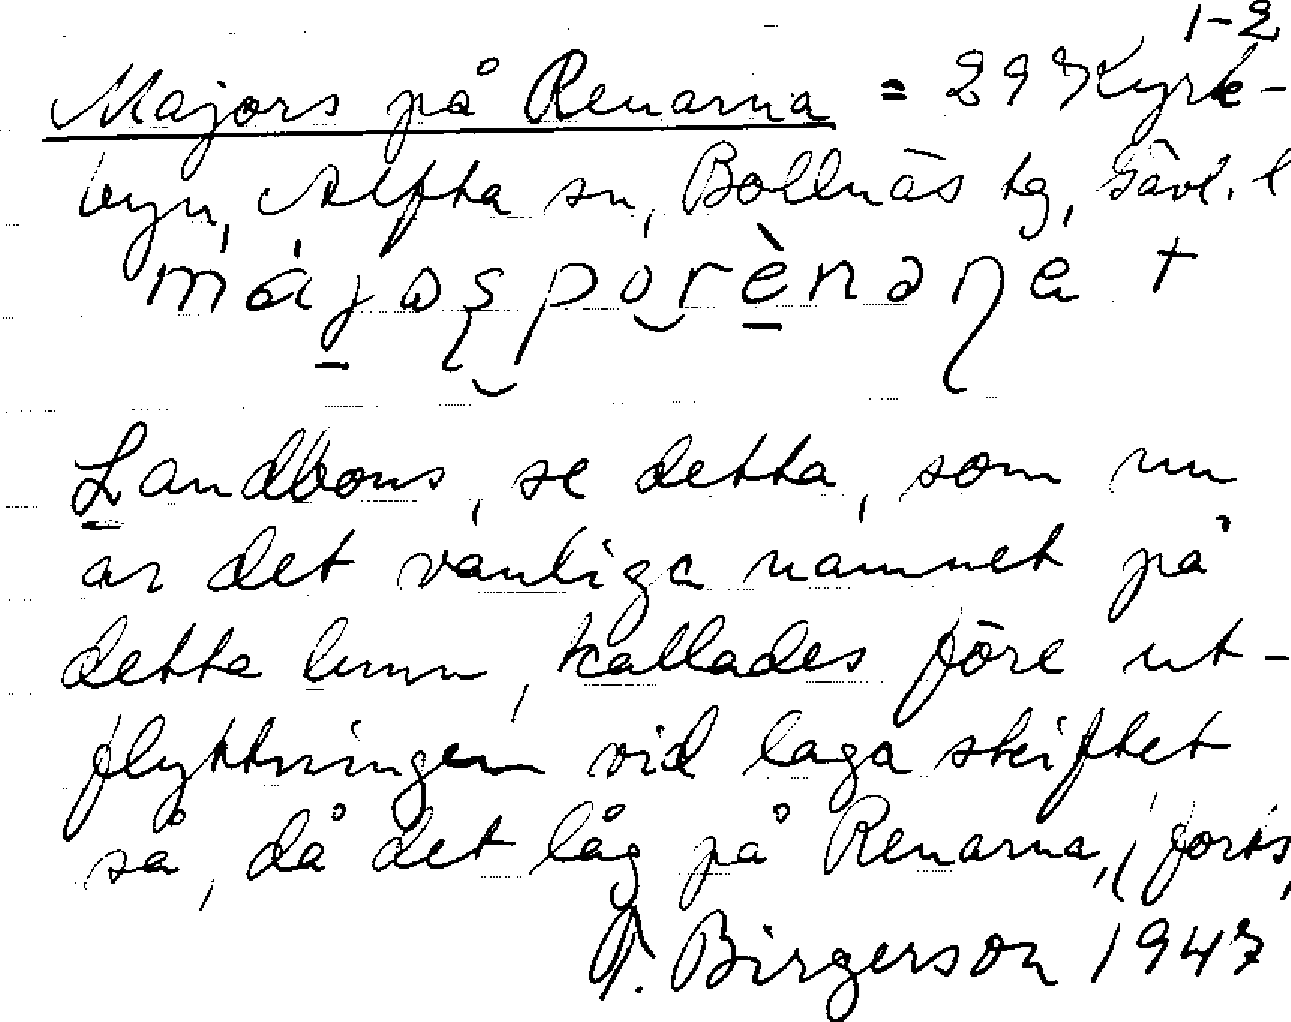 1-2
Majors på Renarna = 297 Kyrk-
byn, Alfta sn, Bollnäs tg, Gävl. l
májɷs porènaɳa +
Landbons, se detta, som nu
är det vanliga namnet på
detta hemn, kallades före ut-
flyttningen vid laga skiftet
så, då det låg på Renarna, (forts,
T. Birgerson 1947